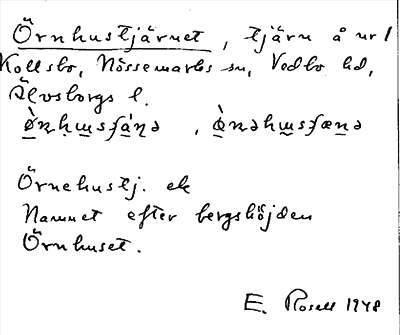 Örnhustjärnet, tjärn å ur/
Kollsbo, Nössemarks sn, Vedbo hd,
Älvsborgs l.
Örnehustj. ek
Namnet efter bergshöjden
Örnhuset.
E. Rosell 1948